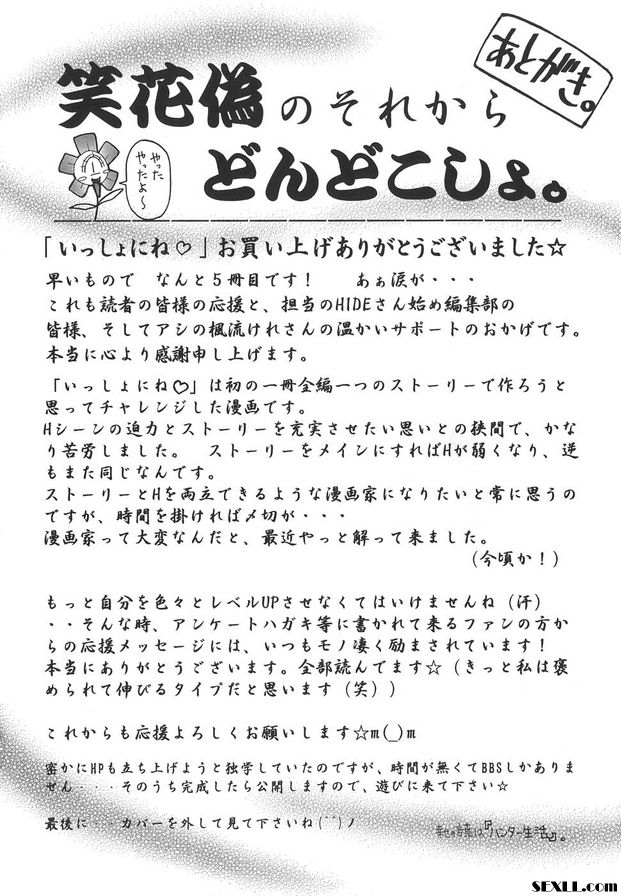 あとがき。
笑花偽のそれから
どんどこしょ。
やった
やったよ〜
「いっしょにね♡」お買い上げありがとうございました☆
早いもので　なんと５冊目です！　　あぁ涙が・・・
これも読者の皆様の応援と、担当のHIDEさん始め編集部の
皆様、そしてアシの楓流けれさんの温かいサポートのおかげです。
本当に心より感謝申し上げます。
「いっしょにね♡」は初の一冊全編一つのストーリーで作ろうと
思ってチャレンジした漫画です。
Hシーンの迫力とストーリーを充実させたい思いとの狭間で、かな
り苦労しました。　ストーリーをメインにすればHが弱くなり、逆
もまた同じなんです。
ストーリーとHを両立できるような漫画家になりたいと常に思うの
ですが、時間を掛ければ〆切が・・・
漫画家って大変なんだと、最近やっと解って来ました。
（今頃か！）
もっと自分を色々とレベルUPさせなくてはいけませんね（汗）
・・そんな時、アンケートハガキ等に書かれて来るファンの方か
らの応援メッセージには、いつもモノ凄く励まされています！
本当にありがとうございます。全部読んでます☆（きっと私は褒
められて伸びるタイプだと思います（笑））
これからも応援よろしくお願いします☆m(_)m
密かにHPも立ち上げようと独学していたのですが、時間が無くてBBSしかありま
せん・・・そのうち完成したら公開しますので、遊びに来て下さい☆
最後に・・カバーを外して見て下さいね(^^)ノ
『ハンター生活』。
SEXLL.com